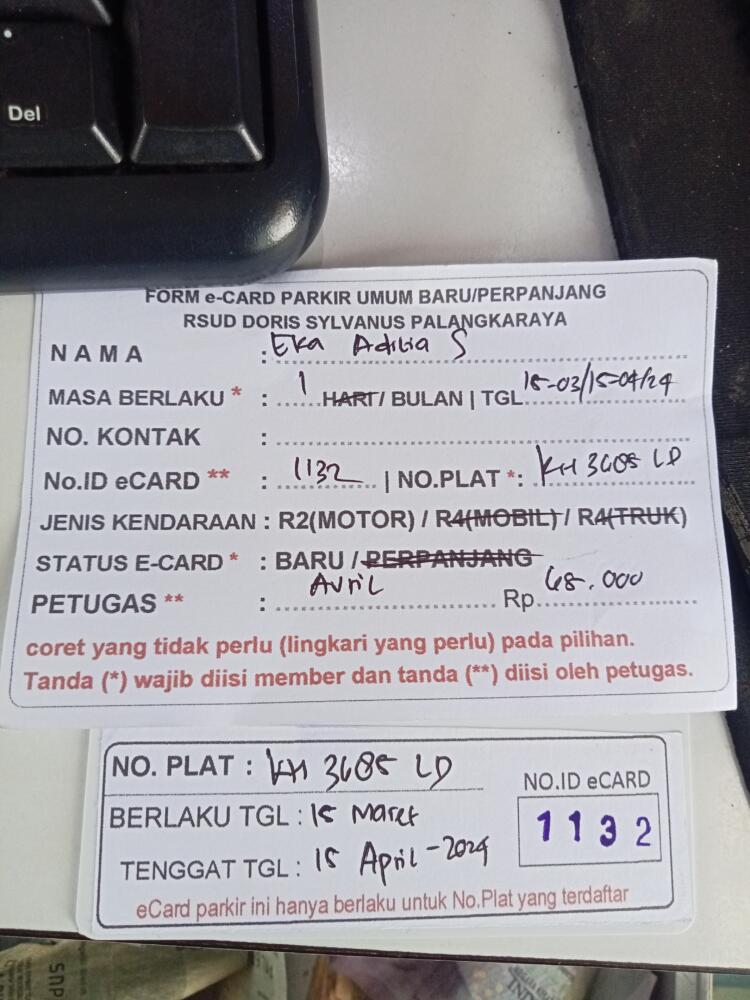 Del
FORM e-CARD PARKIR UMUM BARU/PERPANJANG
RSUD DORIS SYLVANUS PALANGKARAYA
NAMA : Eka Adilia S
MASA BERLAKU * : 1 HARI / BULAN | TGL 15-03/15-04/24
NO. KONTAK :
No.ID eCARD ** : 1132 | NO.PLAT *: KH 3685 LD
JENIS KENDARAAN : R2(MOTOR) / R4(MOBIL) / R4(TRUK)
STATUS E-CARD * : BARU / PERPANJANG
PETUGAS ** : Avril Rp 68.000
coret yang tidak perlu (lingkari yang perlu) pada pilihan.
Tanda (*) wajib diisi member dan tanda (**) diisi oleh petugas.
NO. PLAT : KH 3685 LD
NO.ID eCARD
1132
BERLAKU TGL : 15 Maret
TENGGAT TGL : 15 April - 2024
eCard parkir ini hanya berlaku untuk No.Plat yang terdaftar